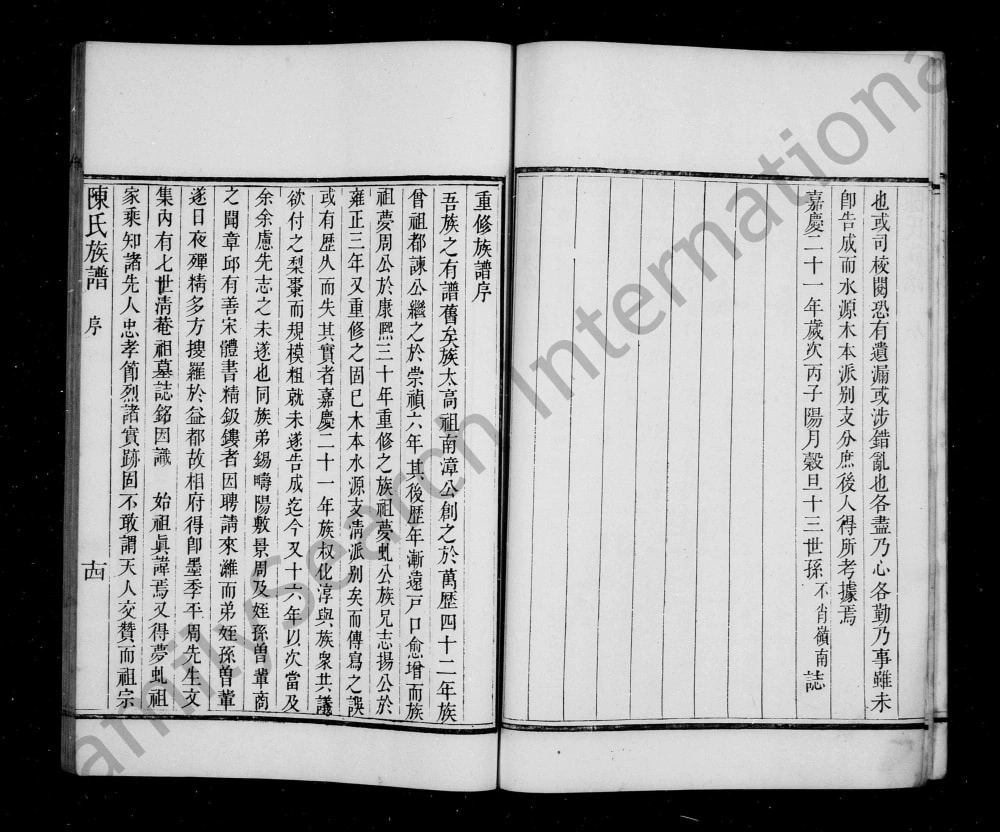 也或司校閱恐有遺漏或涉錯亂也各盡乃心各勤乃事雖未
卽告成而水源木本派別支分庶後人得所考據焉
嘉慶二十一年歲次丙子陽月穀旦十三世孫不肖嶺南誌
重修族譜序
吾族之有譜舊矣族太高祖南漳公創之於萬歷四十二年族
曾祖都諫公繼之於崇禎六年其後歷年漸遠戸口愈增而族
祖夢周公於康熙三十年重修之族祖夢虬公族兄志揚公於
雍正三年又重修之固已木本水源支清派別矣而傳寫之誤
或有歷久而失其實者嘉慶二十一年族叔化淳與族衆共議
欲付之梨棗而規模粗就未遂告成迄今又十六年以次當及
余余慮先志之未遂也同族弟錫疇陽敷景周及姪孫曽輩商
之聞章邱有善宋體書精鈒鏤者因聘請來濰而弟姪孫曽輩
遂日夜殫精多方搜羅於益都故相府得卽墨季平周先生文
集内有七世清菴祖墓誌銘因識 始祖眞諱焉又得夢虬祖
家乘知諸先人忠孝節烈諸實跡固不敢謂天人交贊而祖宗
陳氏族譜 序 十四
FamilySearch International